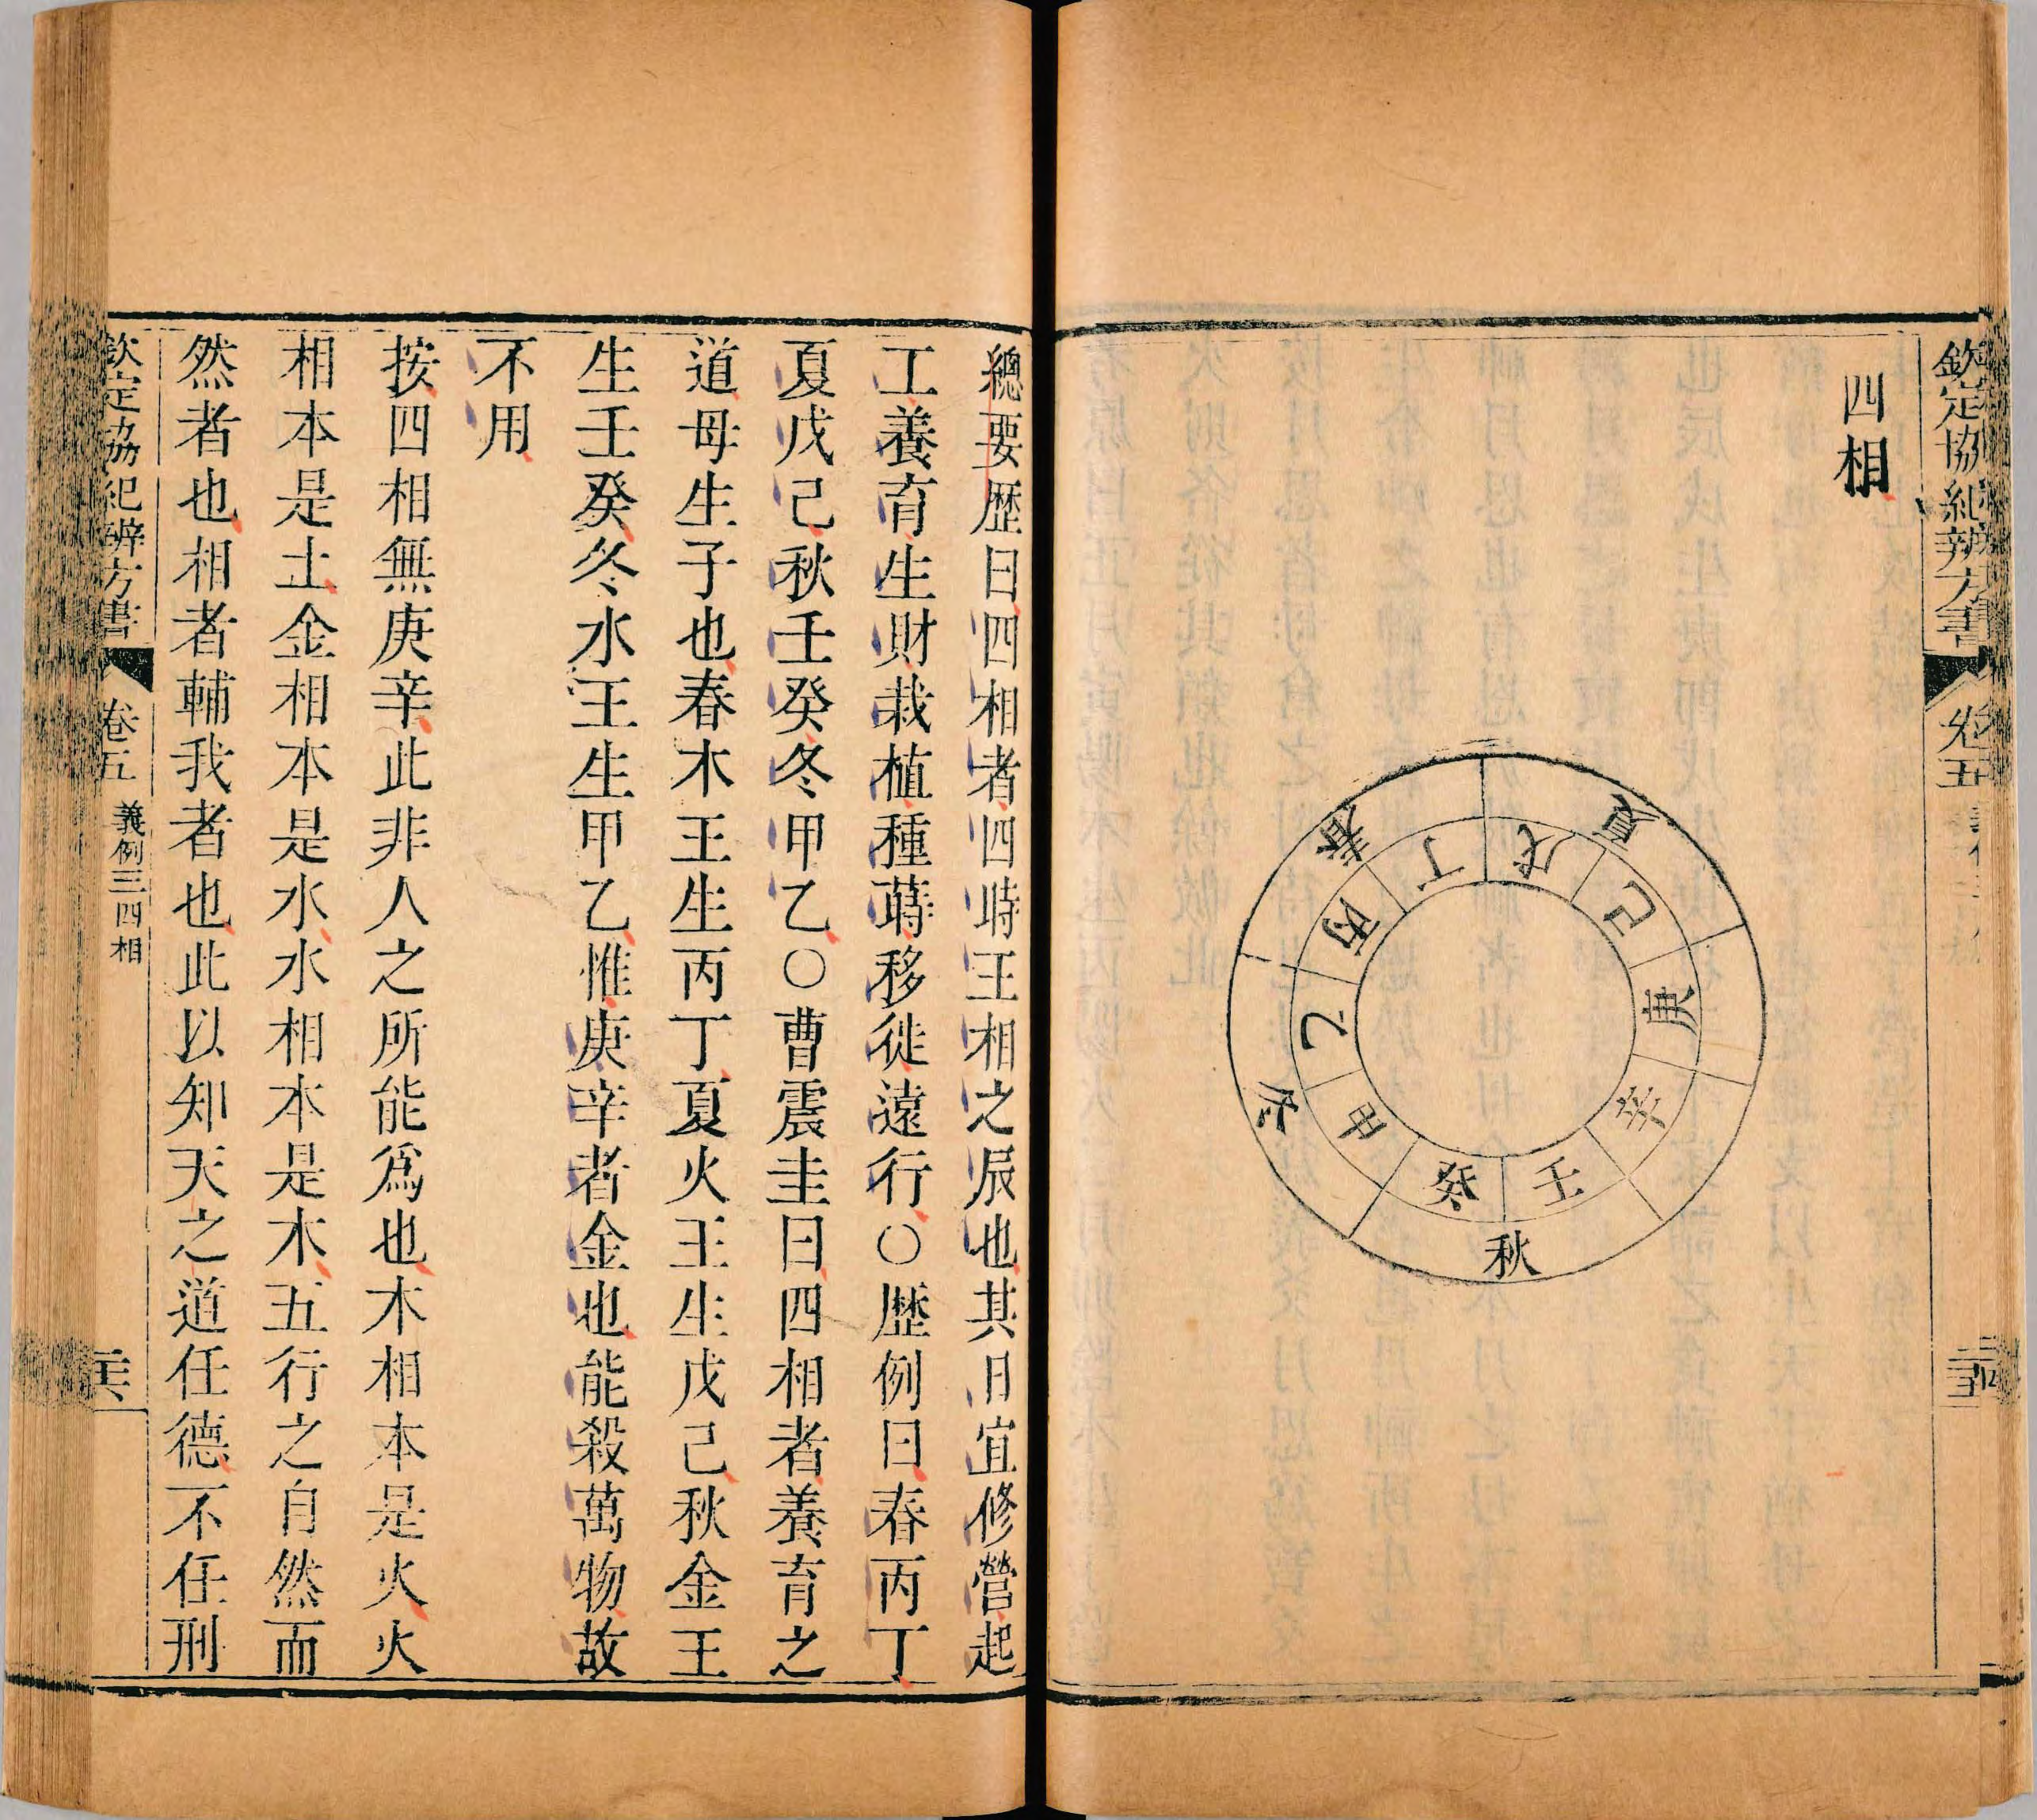 欽定協紀辨方書
卷五
四相
春
夏
秋
冬
甲
乙
丙
丁
戊
己
庚
辛
壬
癸
總要歷曰四相者四時王相之辰也其日宜修營起
工養育生財栽植種蒔移徙遠行○歷例曰春丙丁
夏戊己秋壬癸冬甲乙○曹震圭曰四相者養育之
道母生子也春木王生丙丁夏火王生戊己秋金王
生壬癸冬水王生甲乙惟庚辛者金也能殺萬物故
不用
按四相無庚辛此非人之所能爲也木相本是火火
相本是土金相本是水水相本是木五行之自然而
然者也相者輔我者也此以知天之道任德不任刑
欽定協紀辨方書
卷五
義例三四相